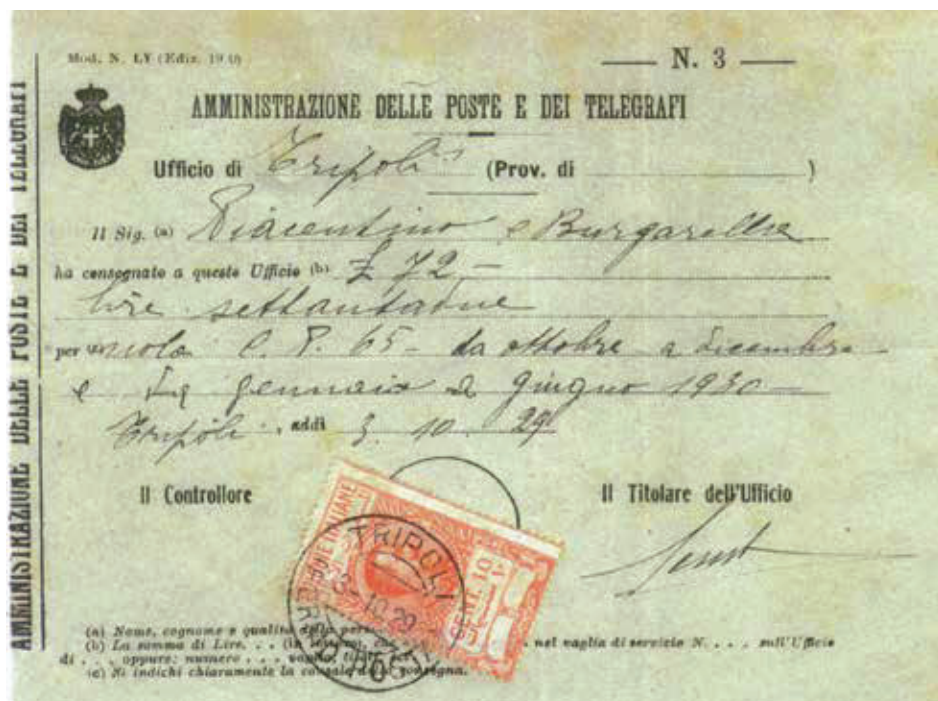 Mod. N. LY (Ediz. 19
N. 3
AMMINISTRAZIONE DELLE POSTE E DEI TELEGRAFI
AMMINISTRAZIONE DELLE POSTE E DEI TELEGRAFI
Ufficio di Tripoli (Prov. di )
Il Sig. (a) Piacentino e Burgarella
ha consegnato a questo Ufficio (b) £ 72 -
lire settantadue
per C. P. 65 - da ottobre a dicembre
e da gennaio a giugno 1930 -
Tripoli, addì 3. 10. 29
Il Controllore
Il Titolare dell'Ufficio
POSTE ITALIANE
CENT. 10
TRIPOLI
3 - 10. 29
(a) Nome, cognome e qualità della
(b) La somma di Lire. . . (in nel vaglia di servizio N. . . . sull'Ufficio
di . . . oppure: numero . . .
(c) Si indichi chiaramente la causale della consegna.